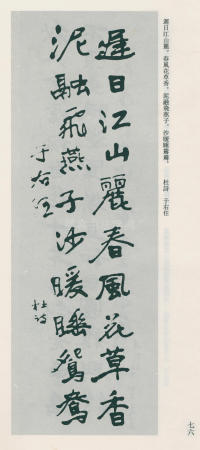 遲日江山麗，春風花草香，泥融飛燕子，沙暖睡鴛鴦。　杜詩　于右任
遲日江山麗春風花草香
泥融飛燕子沙暖睡鴛鴦
杜詩
于右任
七六